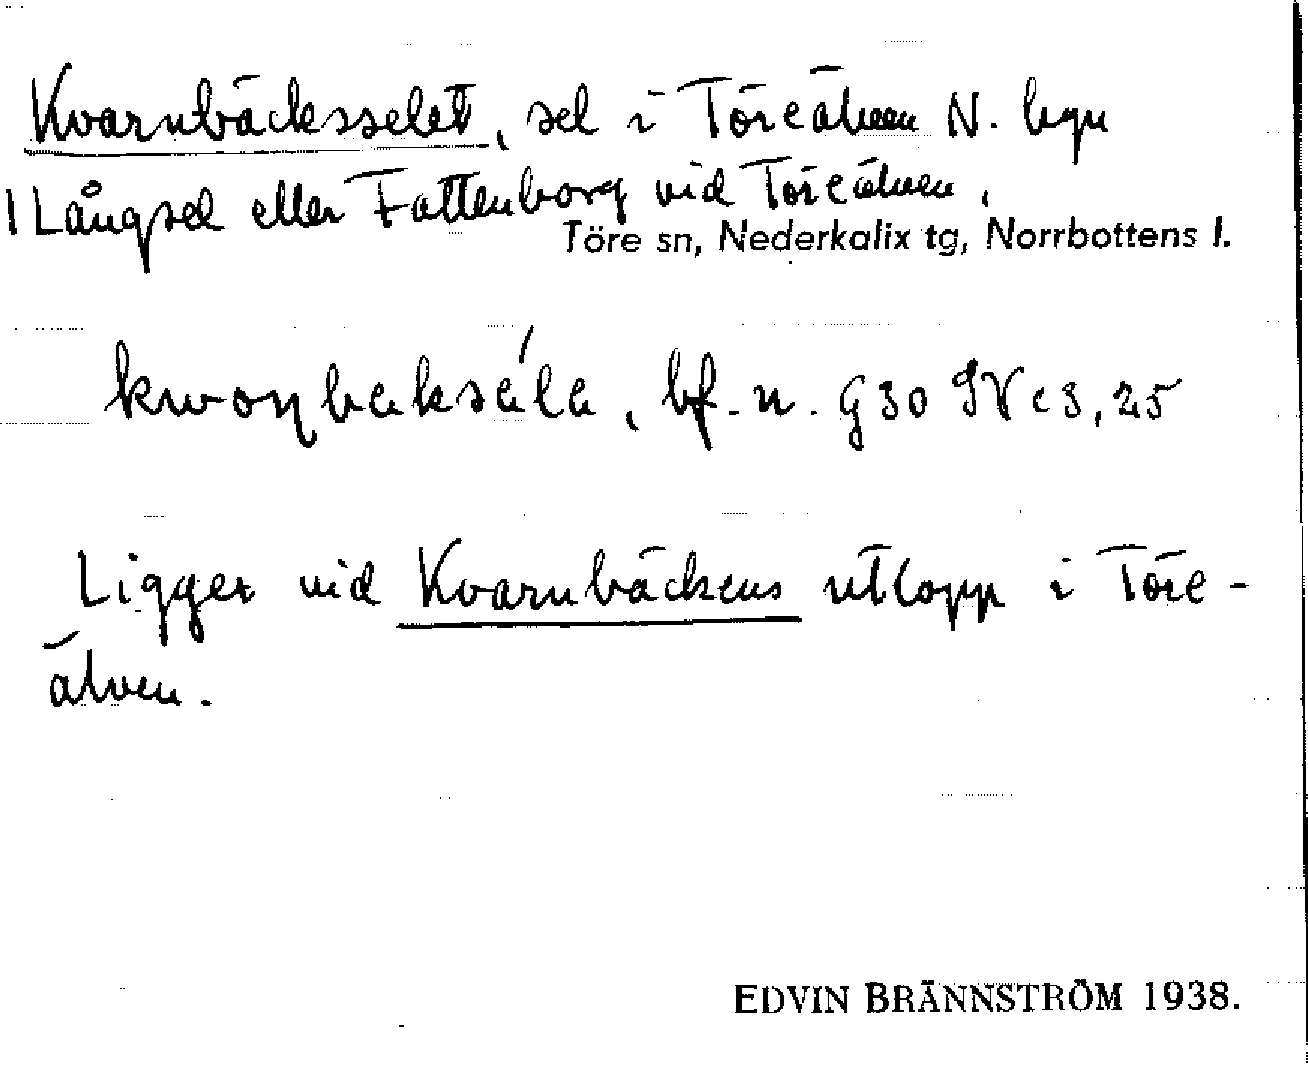 Kvarnbäcksselet, sel i Töreälven N. byn
Långsel eller Fattenborg vid Töreälven.
Töre sn, Nederkalix tg, Norrbottens l.
bf. n. G30 IV c 3, 25
Ligger vid Kvarnbäckens utlopp i Töre-
älven.
EDVIN BRÄNNSTRÖM 1938.